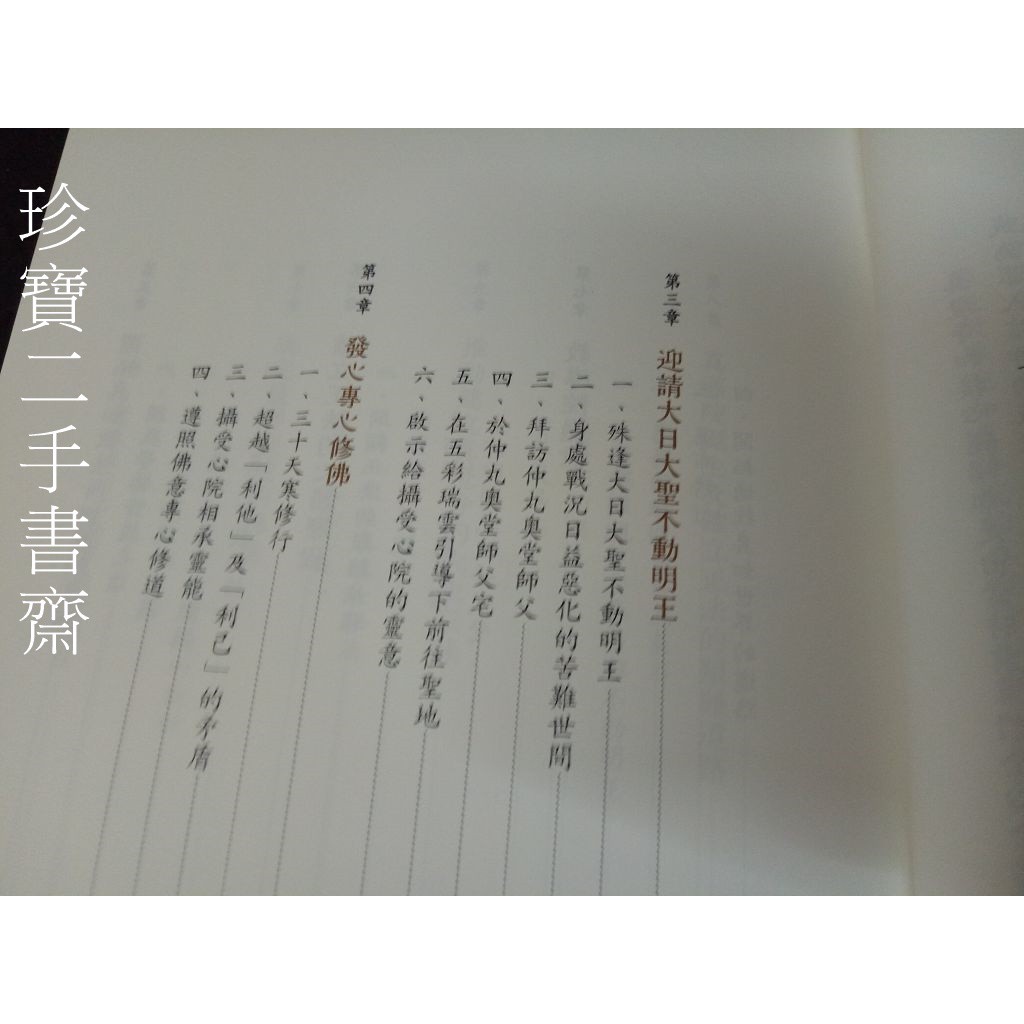 第三章 迎請大日大聖不動明王
一、殊逢大日大聖不動明王
二、身處戰況日益惡化的苦難世間
三、拜訪仲丸奧堂師父
四、於仲丸奧堂師父宅
五、在五彩瑞雲引導下前往聖地
六、啟示給攝受心院的靈意
第四章 發心專心修佛
一、三十天寒修行
二、超越「利他」及「利己」的矛盾
三、攝受心院相承靈能
四、遵照佛意專心修道
珍寶二手書齋